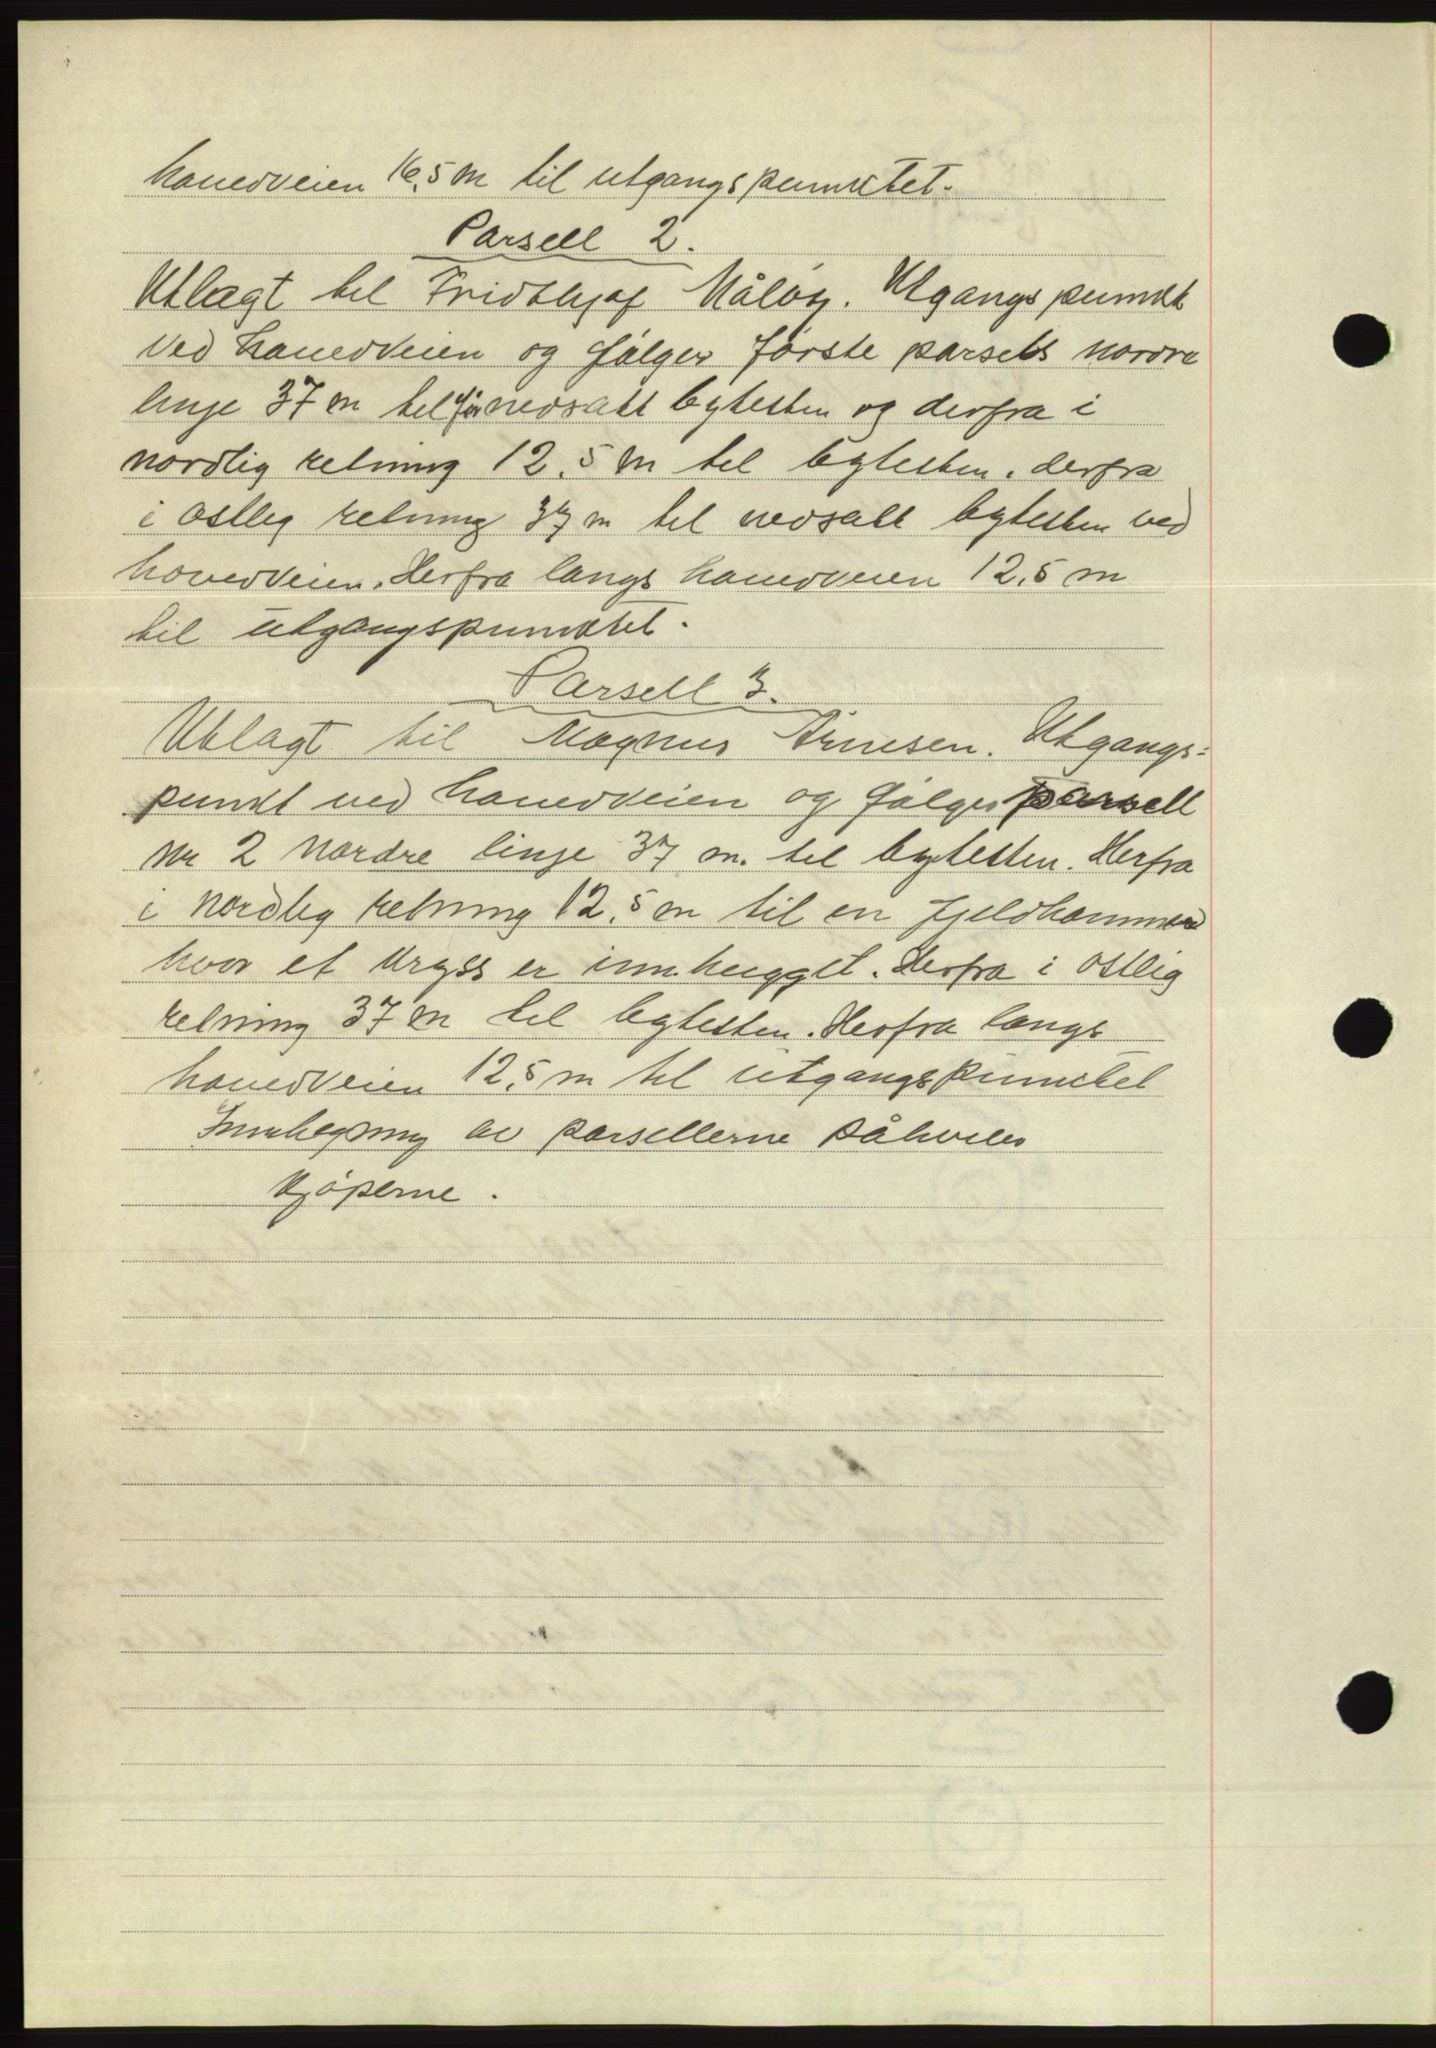 hovedveien 16,5 m til utgangspunktet.
Parsell 2.
Utlagt til Fridthjof Måløy. Utgangspunkt
ved hovedveien og følger første parsells nordre
linje 37 m til før nedsatt bytesten og derfra i
nordlig retning 12,5 m til bytesten. derfra
i østlig retning 37 m til nedsatt bytesten ved
hovedveien. Herfra langs hovedveien 12,5 m
til utgangspunktet.
Parsell 3.
Utlagt til Magnus Arnesen. Utgangs-
punkt ved hovedveien og følger parsell
nr 2 nordre linje 37 m. til bytesten. Herfra
i nordlig retning 12,5 m til en fjeldhammer
hvor et kryss er innhugget. Herfra i østlig
retning 37 m til bytesten. Herfra langs
hovedveien 12,5 m til utgangspunktet
Innhegning av parsellerne påhviler
kjøperne.